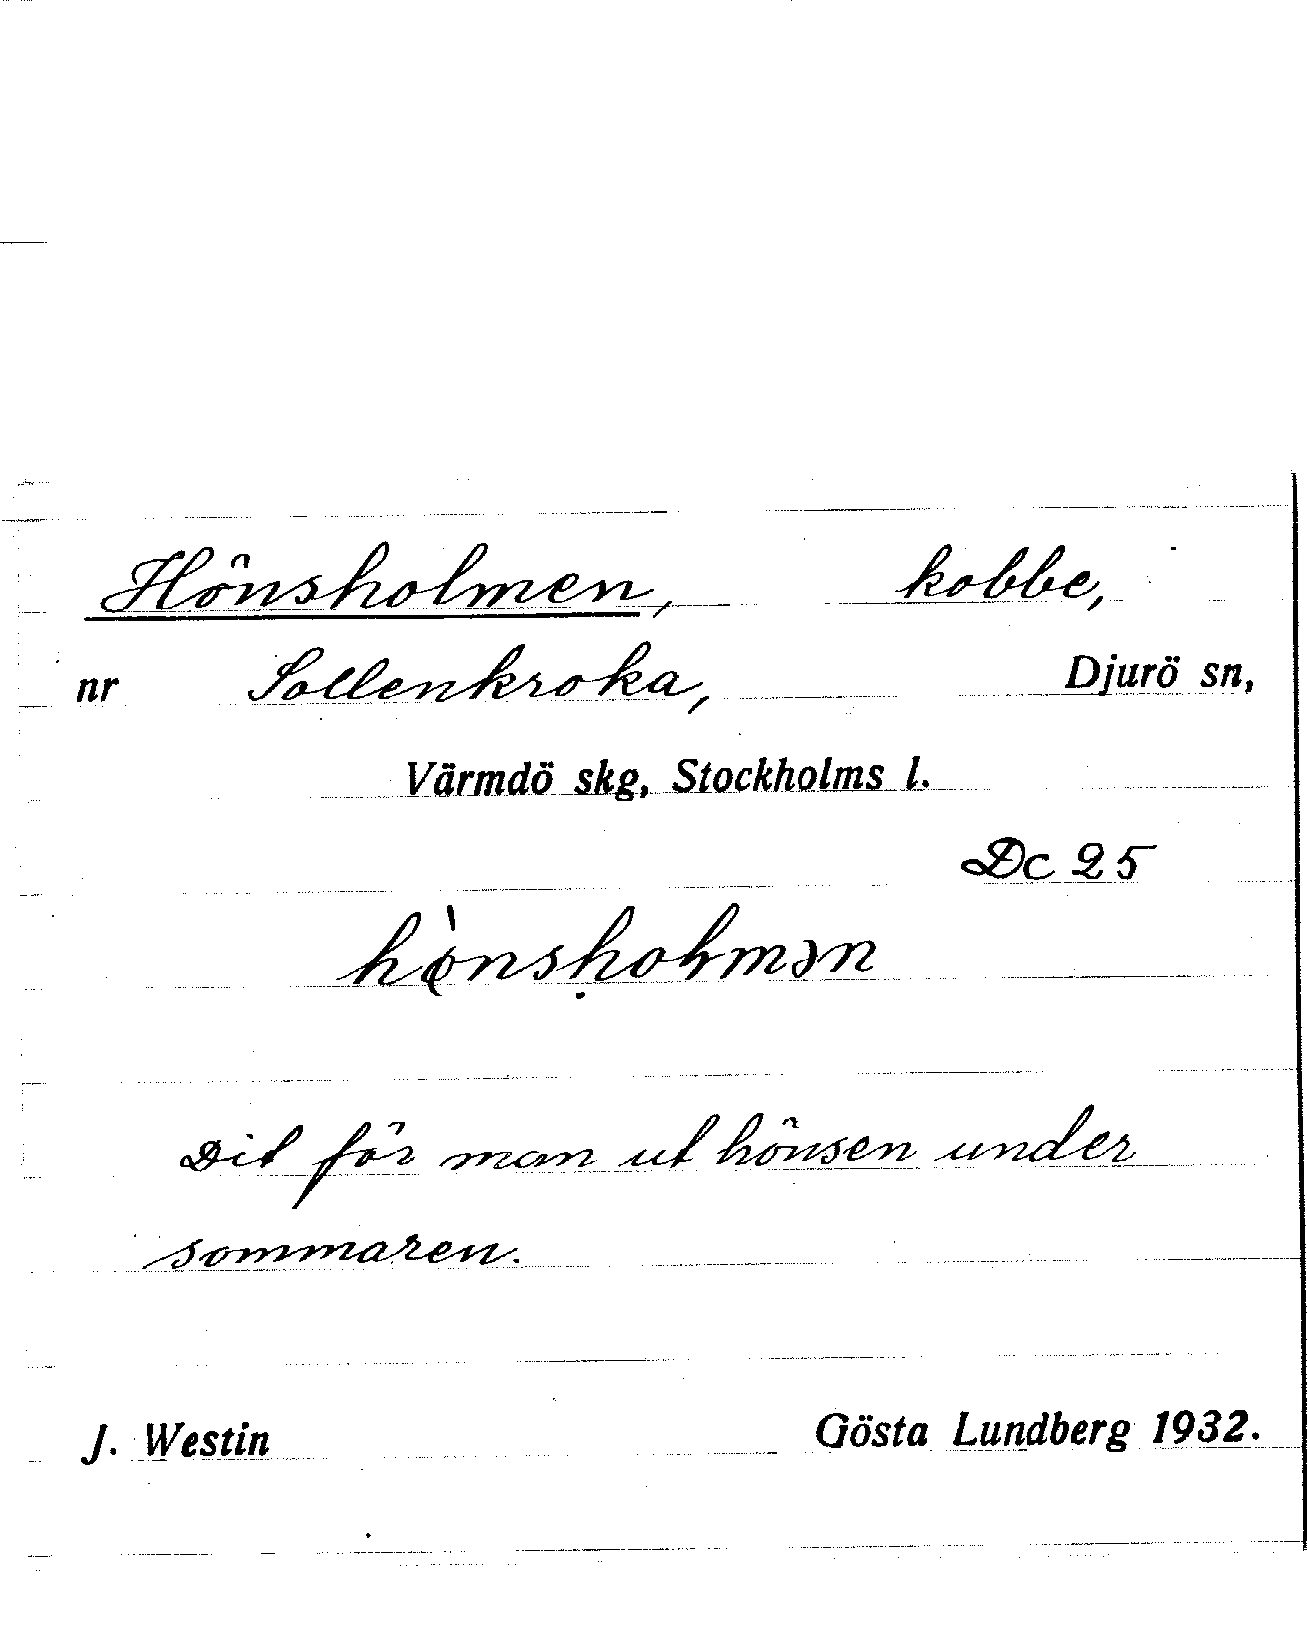 Hönsholmen, kobbe,
nr Sollenkroka, Djurö sn,
Värmdö skg, Stockholms l.
Dc 25
hö̀nsḥoḷmən
Dit för man ut hönsen under
sommaren.
J. Westin Gösta Lundberg 1932.